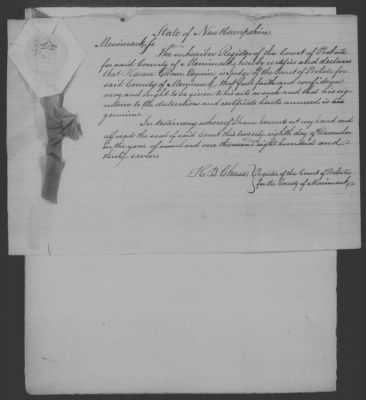 State of New Hampshire
Merrimack ss
The subscriber Register of the Court of Probate
for said County of Merrimack, hereby certifies and declares
that Horace Chase Esquire, is Judge of the Court of Probate, for
said County of Merrimack, that full faith and confidence
may and ought to be given to his acts as such and that his sig-
nature to the declaration and certificate hereto annexed is his
genuine
In testimony whereof I have hereunto set my hand and
affixed the seal of said Court this twenty eighth day of December
in the year of our Lord one thousand eight hundred and
thirty seven
H. B. Chase Register of the Court of Probate
for the County of Merrimack